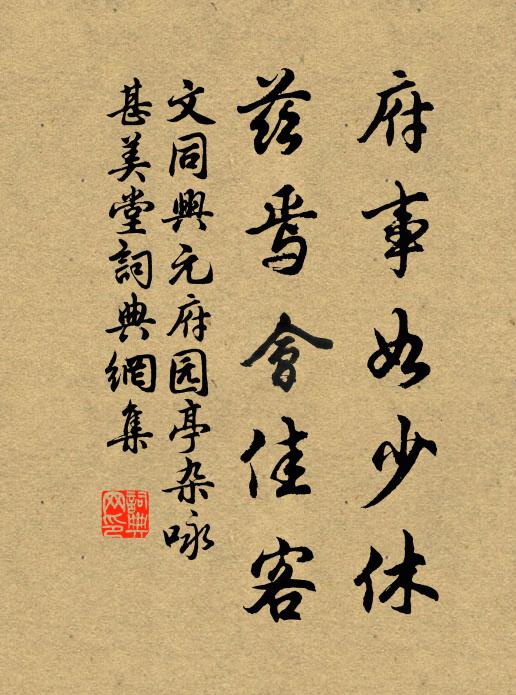 府事如少休
兹焉會佳客
文同興元府园亭杂咏
甚美堂詞典網集
詞典
网印